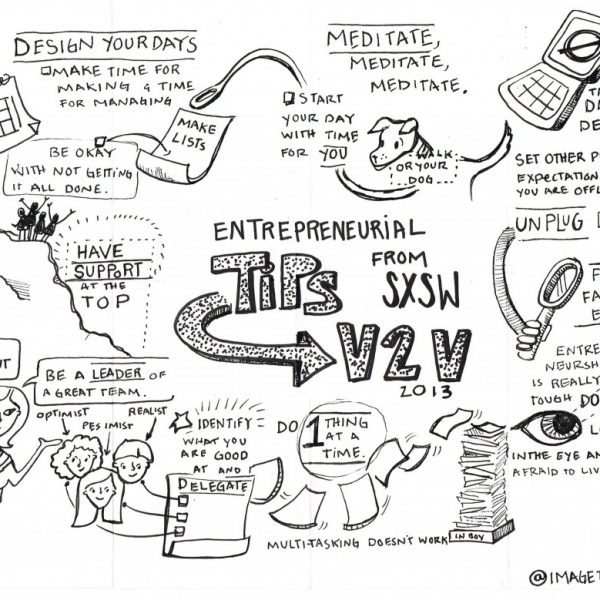 DESIGN YOUR DAYS
MAKE TIME FOR
MAKING & TIME
FOR MANAGING
MAKE
LISTS
BE OKAY
WITH NOT GETTING
IT ALL DONE.
MEDITATE,
MEDITATE,
MEDITATE.
START
YOUR DAY
WITH TIME
FOR YOU
WALK
OR YOUR
DOG
SET OTHER
YOU ARE
UNPLUG
HAVE
SUPPORT
AT THE
TOP
ENTREPRENEURIAL
TIPS FROM
SXSW
V2V
2013
IS REALLY
TOUGH
BE A LEADER OF
A GREAT TEAM.
OPTIMIST
PESIMIST
REALIST
IDENTIFY
WHAT YOU
ARE GOOD
AT AND
DELEGATE
DO 1 THING
AT A
TIME.
MULTI-TASKING DOESN'T WORK
IN BOX
IN THE EYE
AFRAID TO